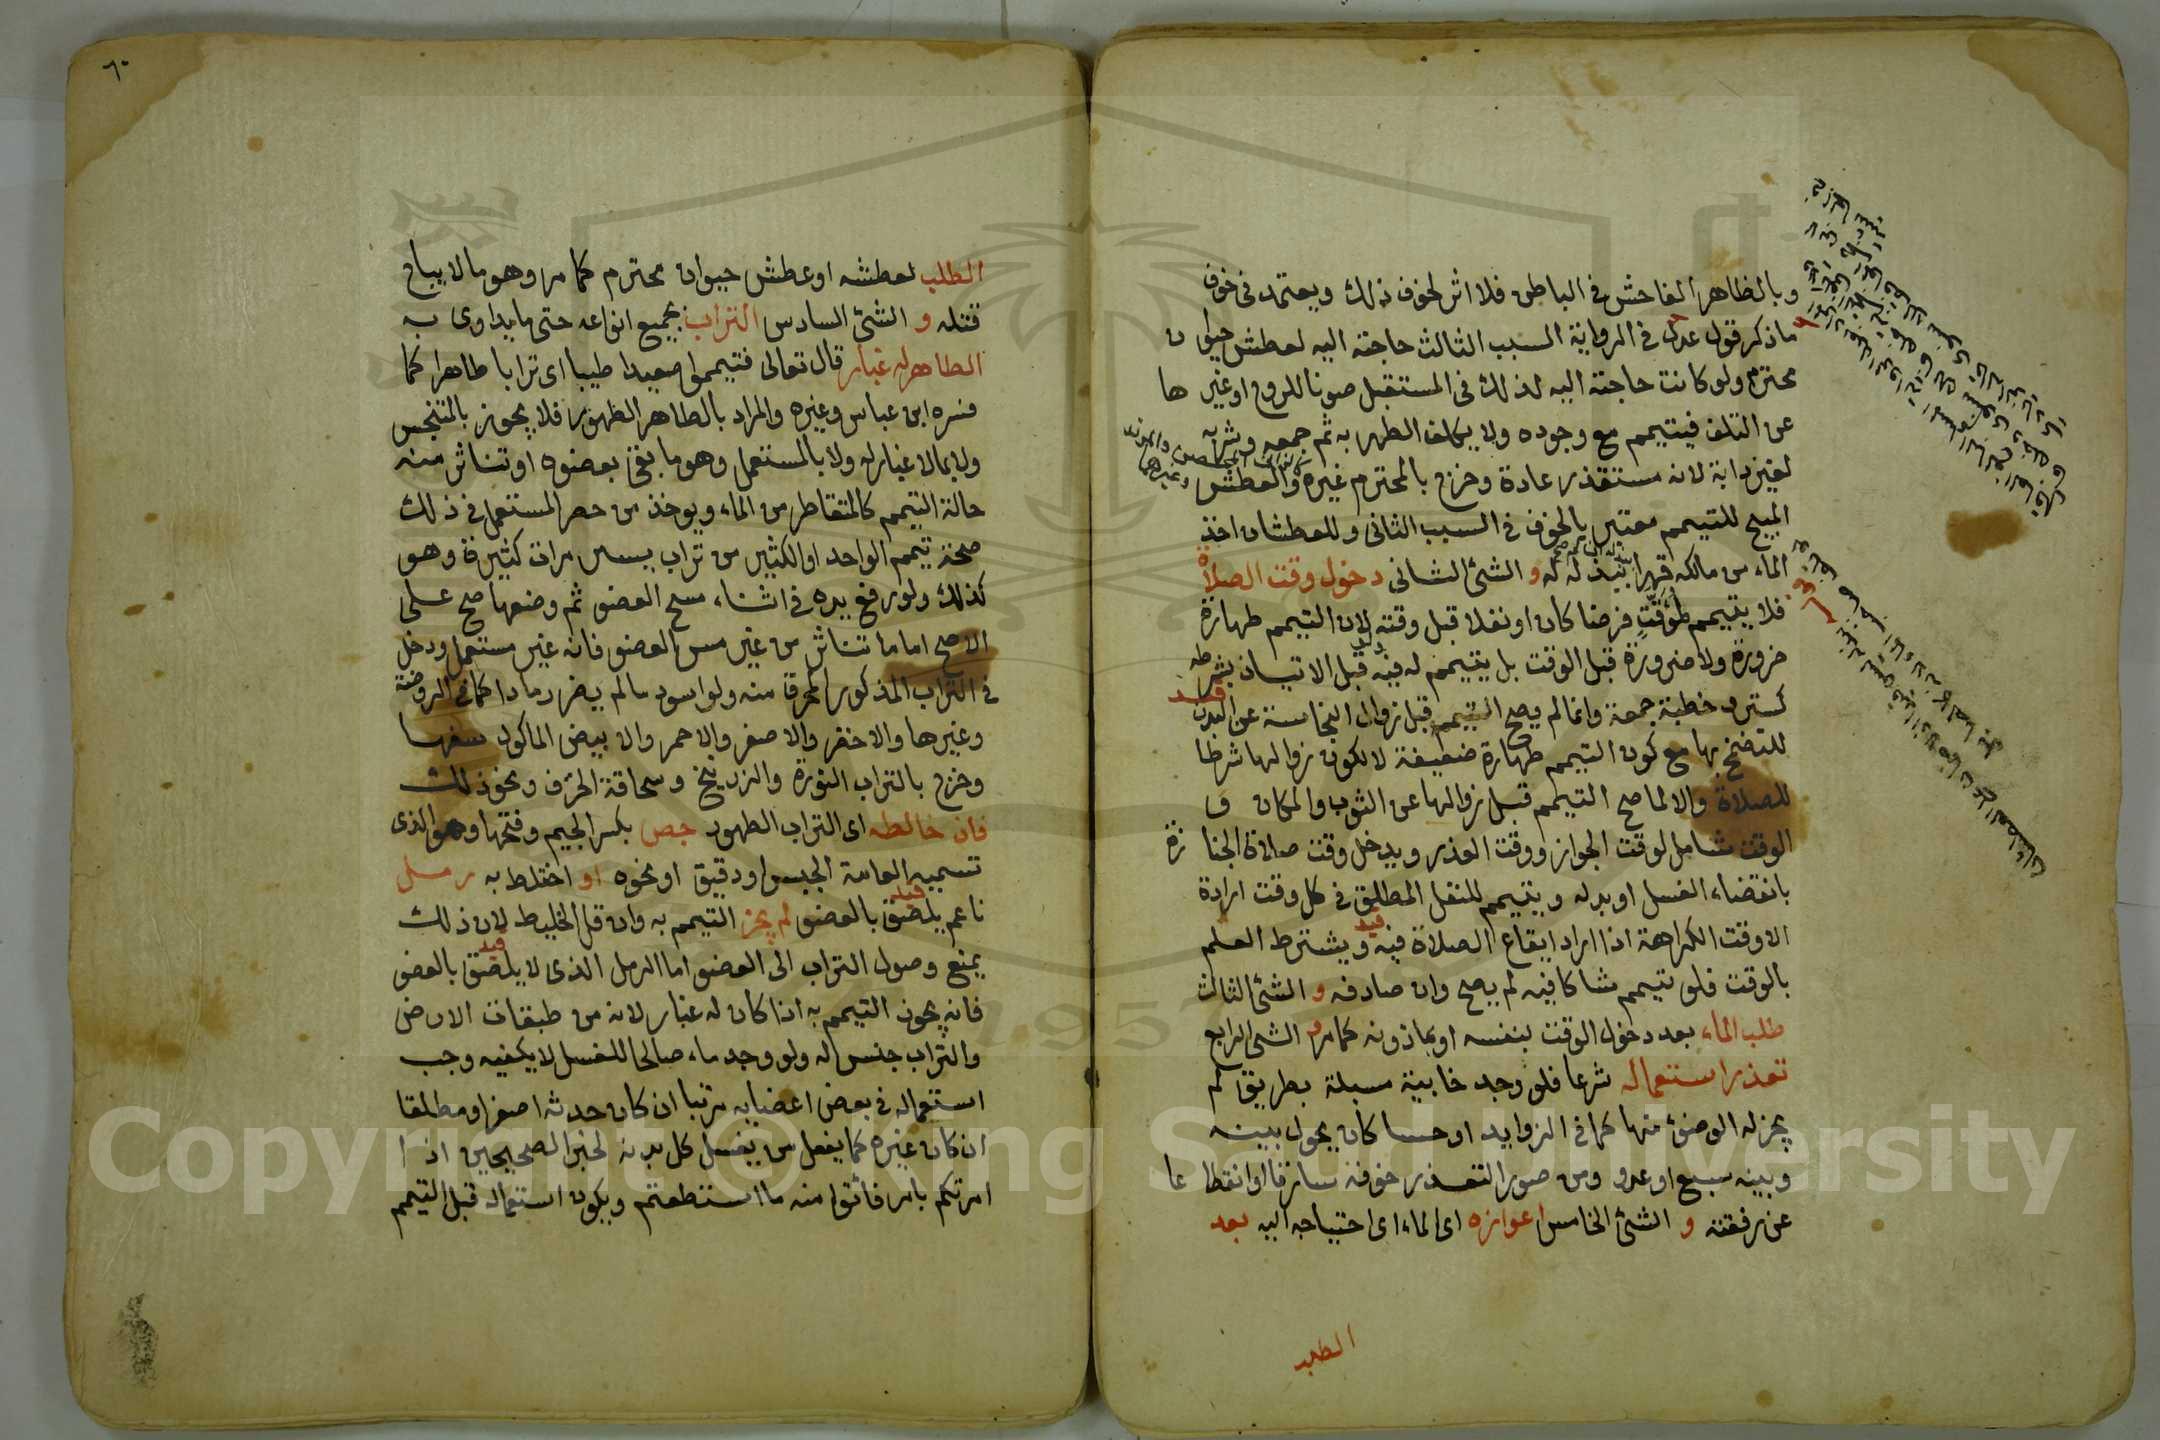 وبالظاهر الفاحش في الباطن فلا اثر لخوف ذلك ويعتمد في خوف
ما ذكر قول عدل في الرواية السبب الثالث حاجته اليه لعطش حيوان
محترم ولو كانت حاجته اليه لذلك في المستقبل صونا للروح او غيرها
عن التلف فيتيمم مع وجوده ولا يكلف الطهر به ثم جمعه وشربه
لغير دابة لانه مستقذر عادة وخرج بالمحترم غيره والعطش
المبيح للتيمم معتبر بالخوف في السبب الثاني وللعطشان اخذ
الماء من مالكه قهرا ببذله له و الشئ الثاني دخول وقت الصلاة
فلا يتيمم لمؤقت فرضا كان او نفلا قبل وقته لان التيمم طهارة
ضرورة ولا ضرورة قبل الوقت بل يتيمم له فيه قبل الاتيان بشرطه
كستر وخطبة جمعة وانما لم يصح التيمم قبل زوال النجاسة عن البدن
للتضمخ بها مع كون التيمم طهارة ضعيفة لا لكون زوالها شرطا
للصلاة والا لما صح التيمم قبل زوالها عن الثوب والمكان و
الوقت شامل لوقت الجواز ووقت العذر ويدخل وقت صلاة الجنازة
بانقضاء الغسل او بدله ويتيمم للنفل المطلق في كل وقت اراده
الا وقت الكراهة اذا اراد ايقاع الصلاة فيه ويشترط العلم
بالوقت فلو تيمم شاكا فيه لم يصح وان صادفه و الشئ الثالث
طلب الماء بعد دخول الوقت بنفسه او بماذونه كما مر و الشئ الرابع
تعذر استعماله شرعا فلو وجد خابية مسبلة بطريق لم
يجز له الوضوء منها كما في الزوايد او حسا كان يحول بينه
وبينه سبع او عدو ومن صور التعذر خوفه سارقا او انقطاعا
عن رفقته و الشئ الخامس اعوازه اى الماء اى احتياجه اليه بعد
الطلب
٦٠
الطلب لعطشه او عطش حيوان محترم كما مر وهو ما لا يباح
قتله و الشئ السادس التراب بجميع انواعه حتى ما يداوى به
الطاهر له غبار قال تعالى فتيمموا صعيدا طيبا اى ترابا طاهرا كما
فسره ابن عباس وغيره والمراد بالطاهر الطهور فلا يجوز بالمتنجس
ولا بما لا غبار له ولا بالمستعمل وهو ما بقى بعضوه او تناثر منه
حالة التيمم كالمتقاطر من الماء ويوخذ من حصر المستعمل في ذلك
صحة تيمم الواحد او الكثير من تراب يسير مرات كثيرة وهو
كذلك ولو رفع يده في اثناء مسح العضو ثم وضعها صح على
الاصح اما ما تناثر من غير مس العضو فانه غير مستعمل ودخل
في التراب المذكور المحرق منه ولو اسود ما لم يصر رمادا كما في الروضة
وغيرها والاعفر والاصفر والاحمر والابيض الماكول سفها
وخرج بالتراب النورة والزرنيخ وسحاقة الخزف ونحو ذلك
فان خالطه اى التراب الطهور جص بكسر الجيم وفتحها وهو الذى
تسميه العامة الجبس او دقيق او نحوه او اختلط به رمل
ناعم يلصق بالعضو لم يجز التيمم به وان قل الخليط لان ذلك
يمنع وصول التراب الى العضو اما الرمل الذى لا يلصق بالعضو
فانه يجوز التيمم به اذا كان له غبار لانه من طبقات الارض
والتراب جنس له ولو وجد ماء صالحا للغسل لا يكفيه وجب
استعماله في بعض اعضايه مرتبا ان كان حدثه اصغر او مطلقا
ان كان غيره كما يفعل من يغسل كل بدنه لخبر الصحيحين اذا
امرتكم بامر فأتوا منه ما استطعتم ويكون استعماله قبل التيمم
Copyright © King Saud University
1957